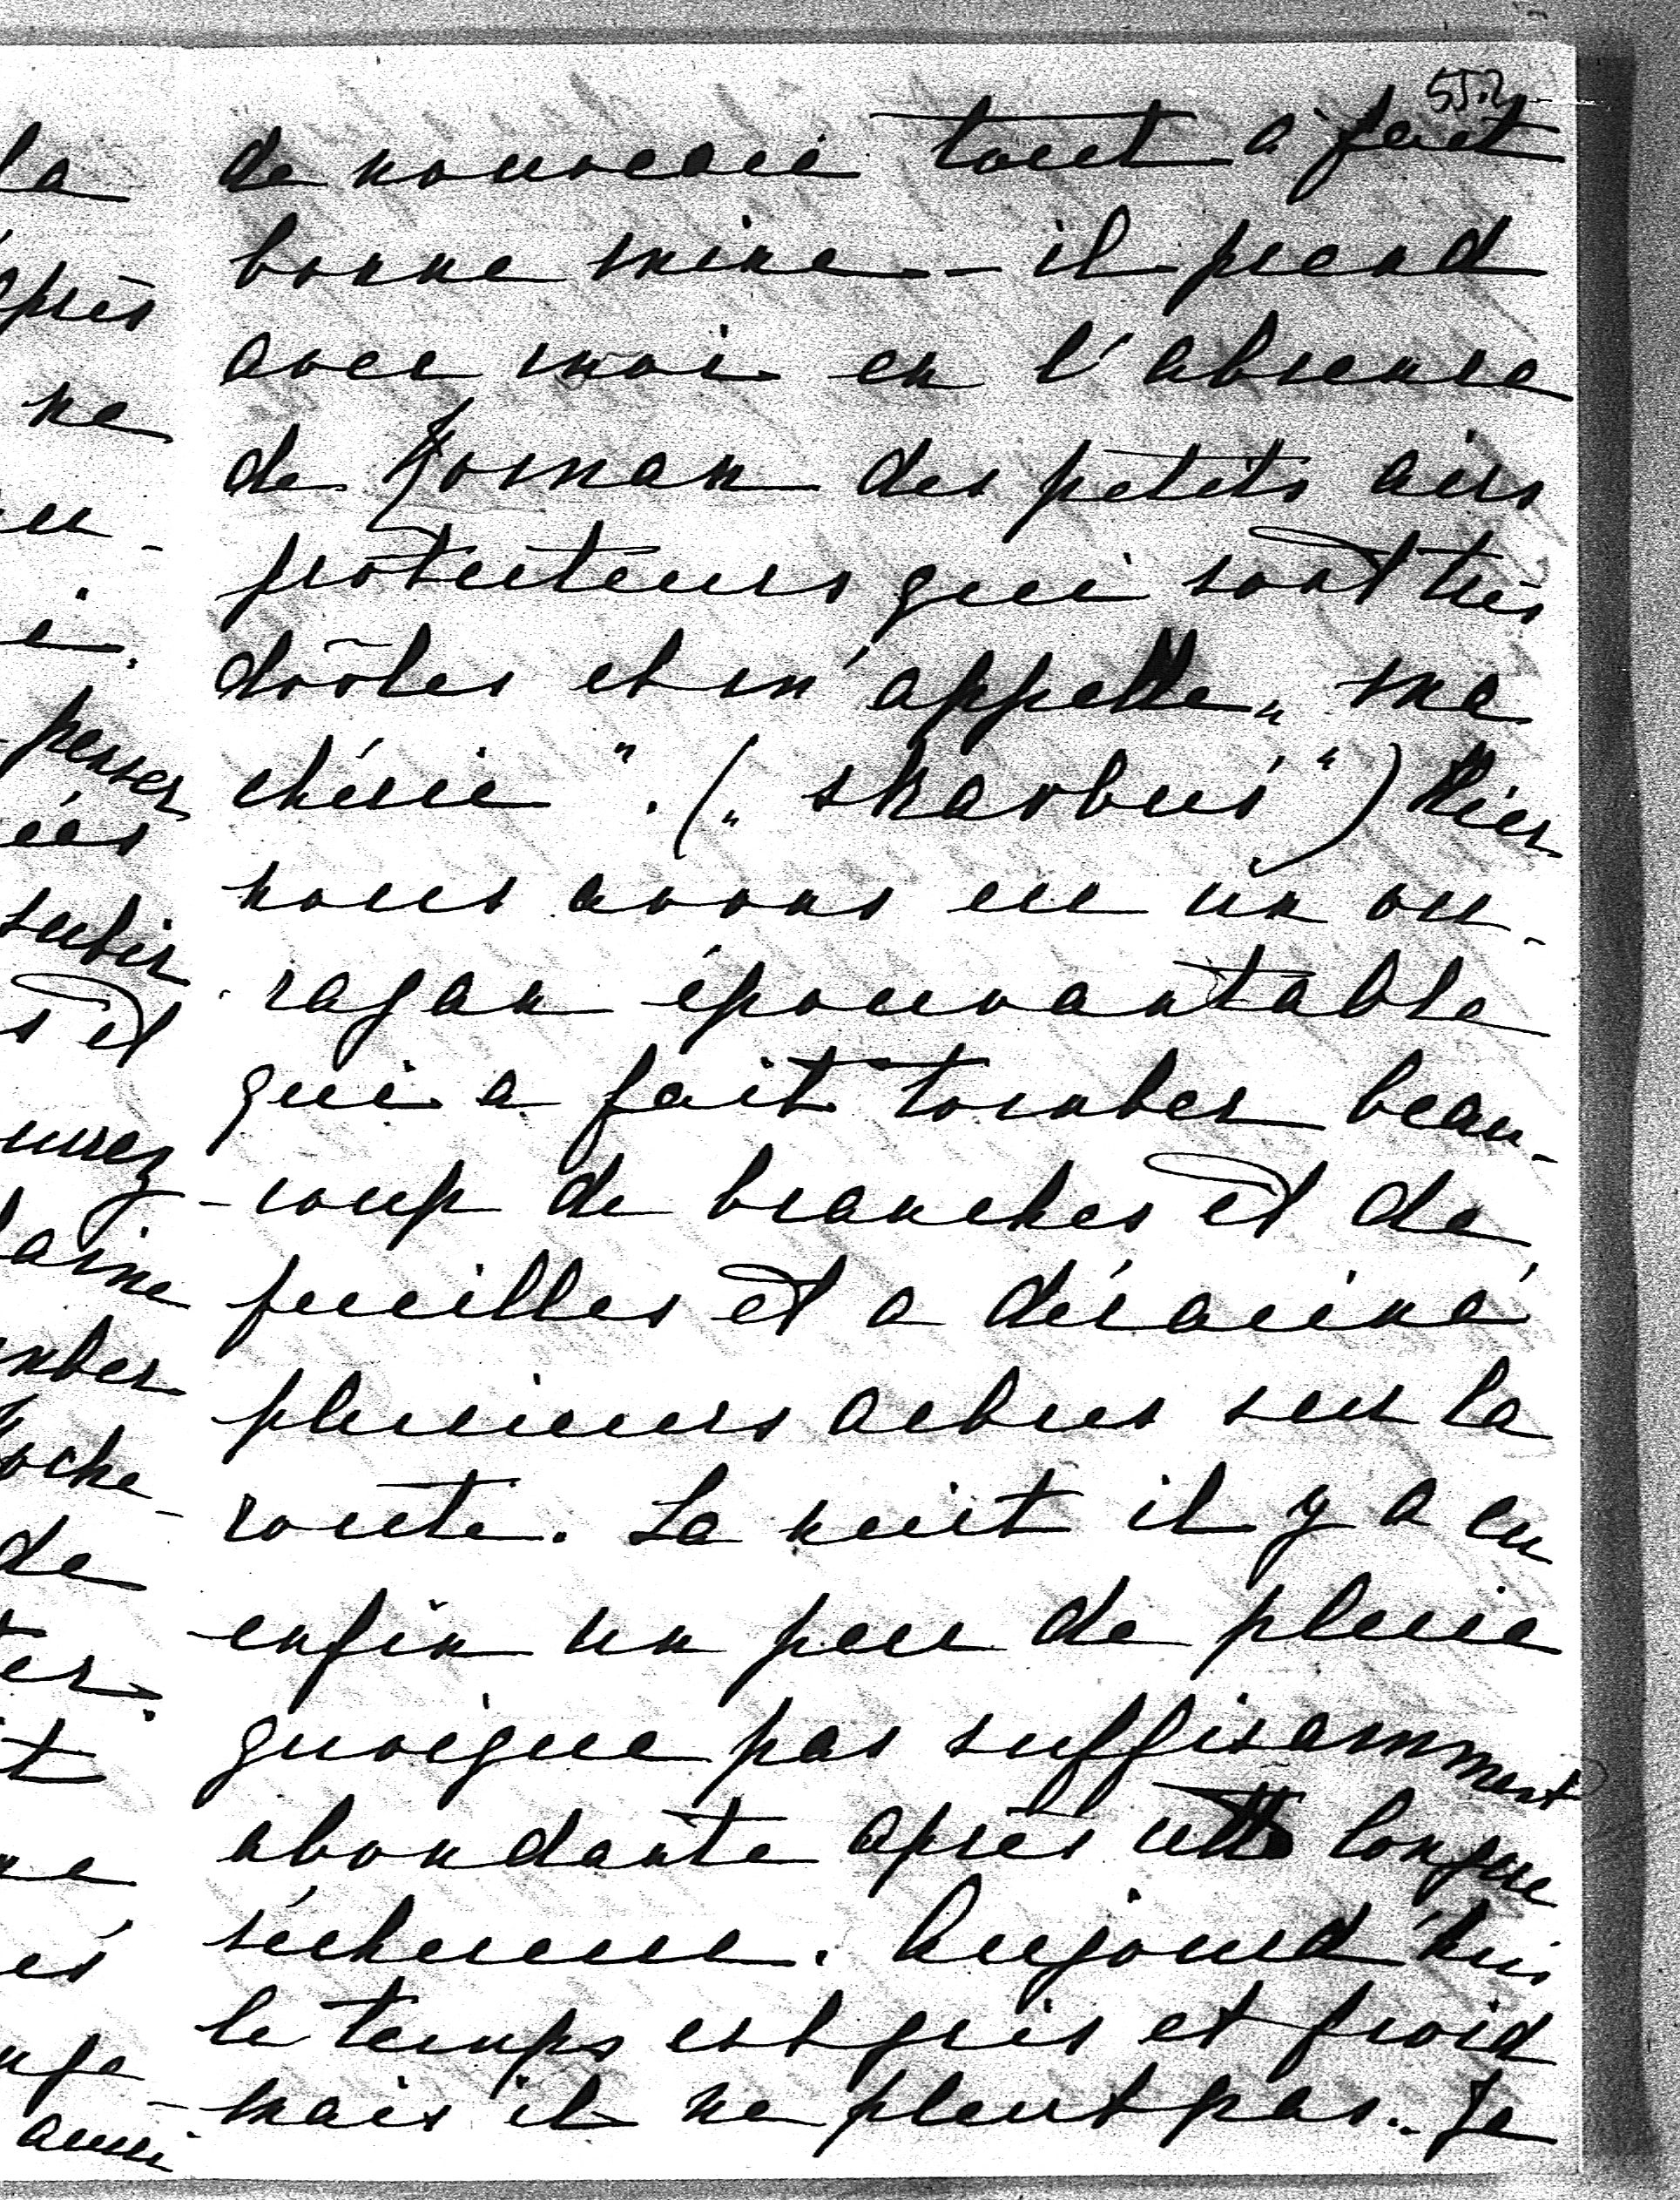 552
de nouveau tout à fait
bonne mine – il prend
avec moi en l'absence
de Roman des petits airs
protecteurs qui sont très
drôles et m'appelle „ma
chérie". („skarbuś") Hier
nous avons eu un ou-
ragan épouvantable
qui a fait tomber beau-
-coup de branches et de
feuilles et a déraciné
plusieurs arbres sur la
route. La nuit il y a eu
enfin un peu de pluie
quoique pas suffisamment
abondante après cette longue
sécheresse. Aujourd'hui
le temps est gris et froid
mais il ne pleut pas. Je
la
près
ne
penser
ées
subir
s et
urrez
mber
oche-
de
er.
t
ne
és
aussi